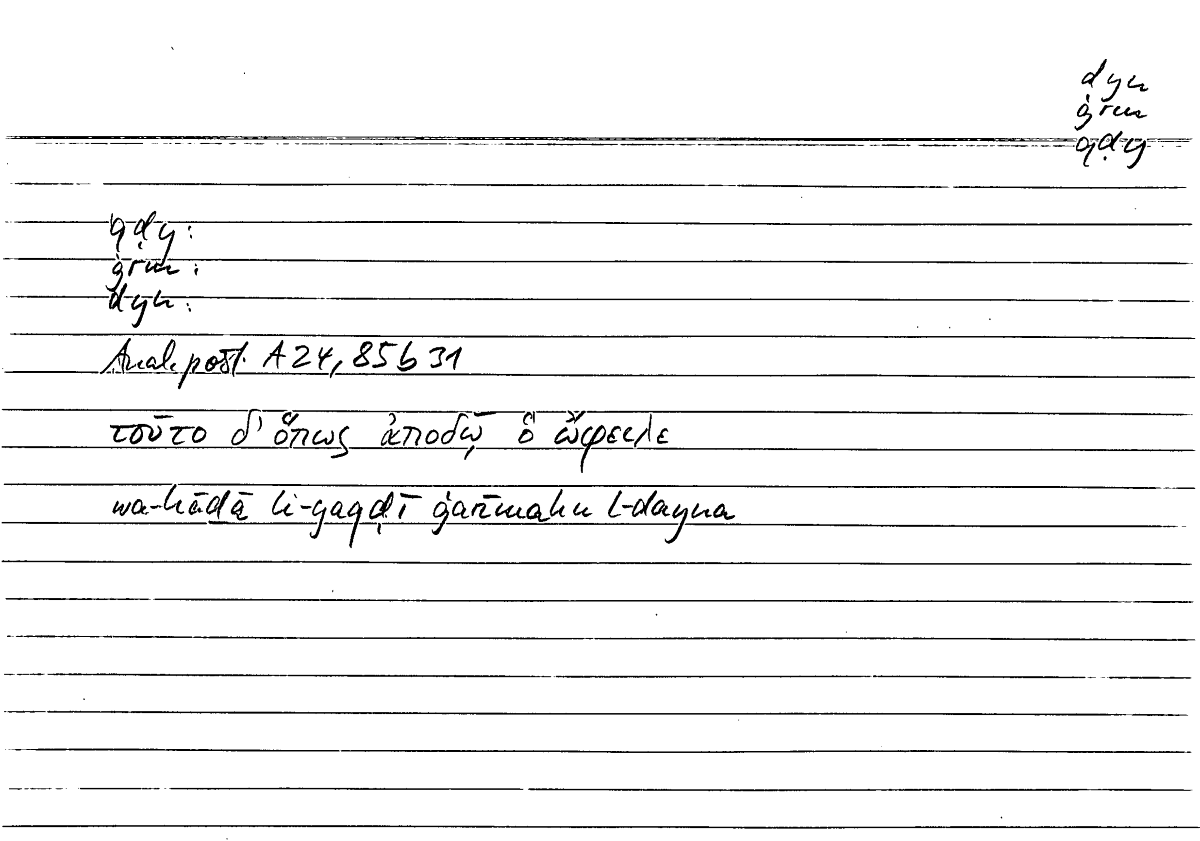 dyn
ġrm
qḍy
qḍy:
ġrm:
dyn:
Anal. post. A 24, 85 b 31
τοῦτο δ' ὅπως ἀποδῷ ὃ ὤφειλε
wa-hāḏā li-yaqḍī ġarīmahu l-dayna